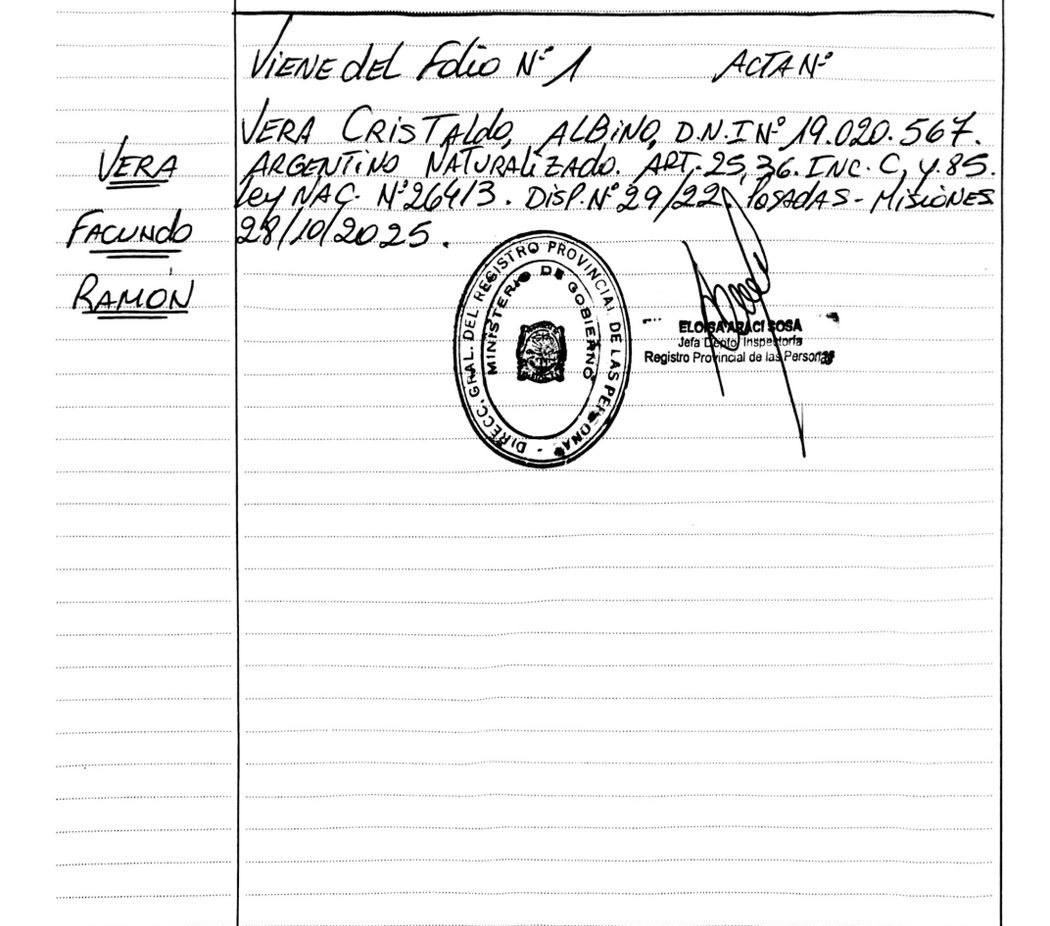 Viene del Folio Nº 1 ACTA Nº
VERA
FACUNDO
RAMÓN
VERA CRISTALDO, ALBINO, D.N.I Nº 19.020.567.
ARGENTINO NATURALIZADO. ART. 25, 36. INC. C, Y. 85.
Ley NAC. Nº 26413. DISP. Nº 29/22 POSADAS - MISIONES
28/10/2025.
DIRECC. GRAL. DEL REGISTRO PROVINCIAL DE LAS PERSONAS -
MINISTERIO DE GOBIERNO
ELOISA ARACI SOSA
Jefa Depto Inspectoría
Registro Provincial de las Personas